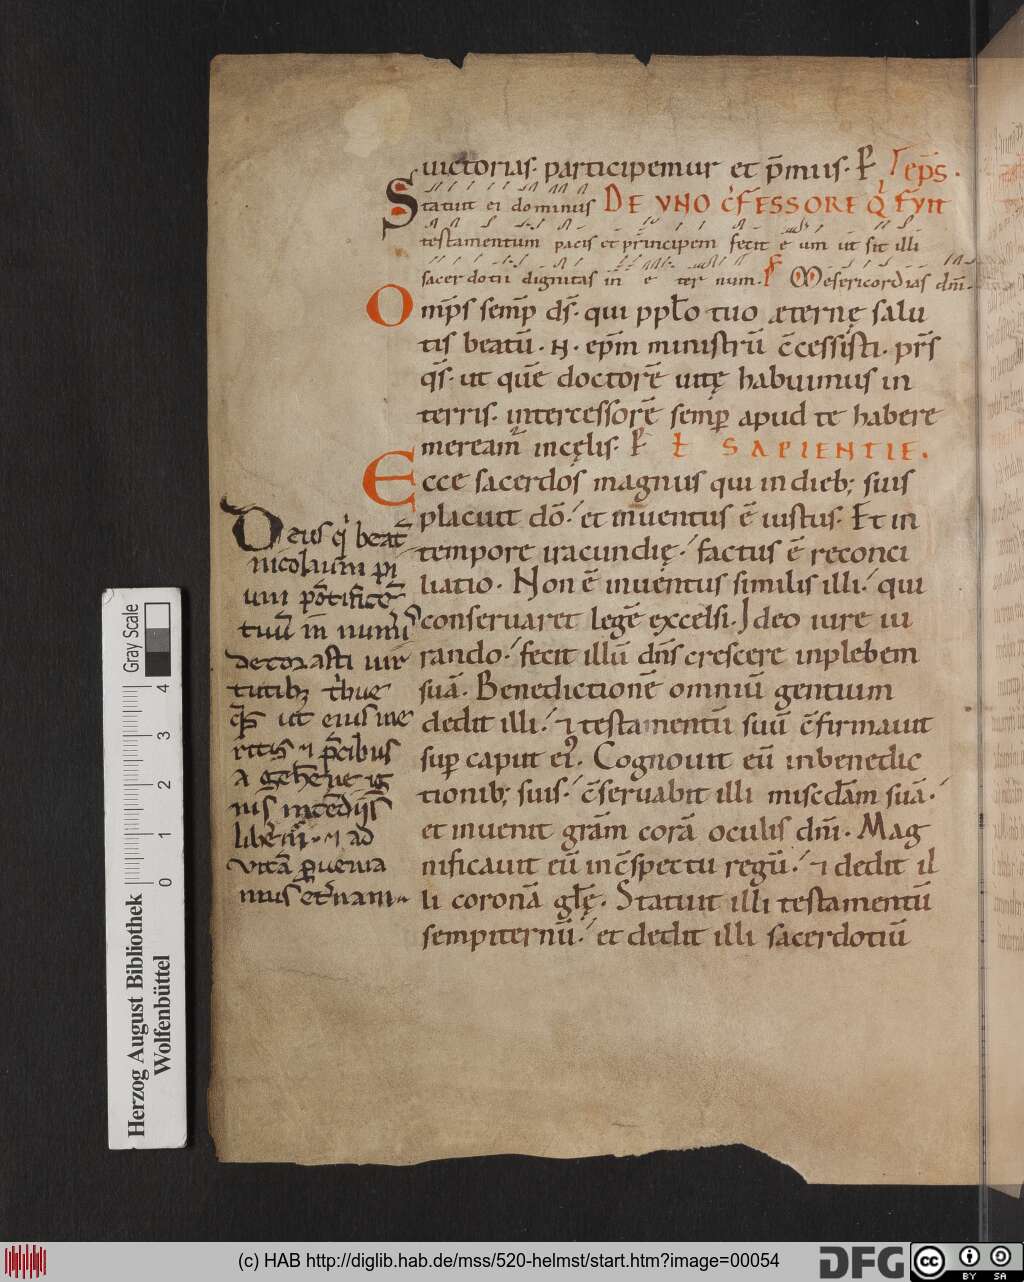 uictorias. participemur et p̄miis. P̄ eps.
Statuit ei dominus DE VNO C̄FESSORE Q̇ FVIT
testamentum pacis et principem fecit e um ut sit illi
sacer dotii dignitas in e ter num. Mesericordias dm̄.
Om̄ps semp̄ ds̄. qui pplo tuo æternę salu
tis beatū. N. ep̄m ministrū c̄cessisti. pr̄s
qs̄. ut quē doctorē uitę habuimus in
terris. intercessorē semp apud te habere
meream̄ incęlis. P̄ ł SAPIENTIE.
Ecce sacerdos magnus qui in dieb; suis
placuit dō. et inuentus ē iustus. Et in
tempore iracundię. factus ē reconci
liatio. Non ē inuentus similis illi. qui
conseruaret legē excelsi. Ideo iure iu
rando. fecit illū dn̄s crescere inplebem
suā. Benedictionē omniū gentium
dedit illi. ⁊ testamentū suū c̄firmauit
sup caput ei᾽. Cognouit eū inbenedic
tionib; suis. c̄seruabit illi misc̄dam suā.
et inuenit grām corā oculis dm̄. Mag
nificauit eū inc̄spectu regū. ⁊ dedit il
li coronā glę̄. Statuit illi testamentū
sempiternū. et dedit illi sacerdotiū
Deus q̇ beat̄
nicolaum pi
um pōtificē
tuū in numis
decorasti uir
tutibȝ t̄bue
q̄s ut eius me
ritis ⁊ p̄cibus
a gehēne ig
nis incēdiis
liberm̄. ⁊ ad
uitā p̱uenia
mus et̄nam.
Gray Scale
4
3
2
1
0
Herzog August Bibliothek
Wolfenbüttel
(c) HAB http://diglib.hab.de/mss/520-helmst/start.htm?image=00054
DFG
cc BY SA